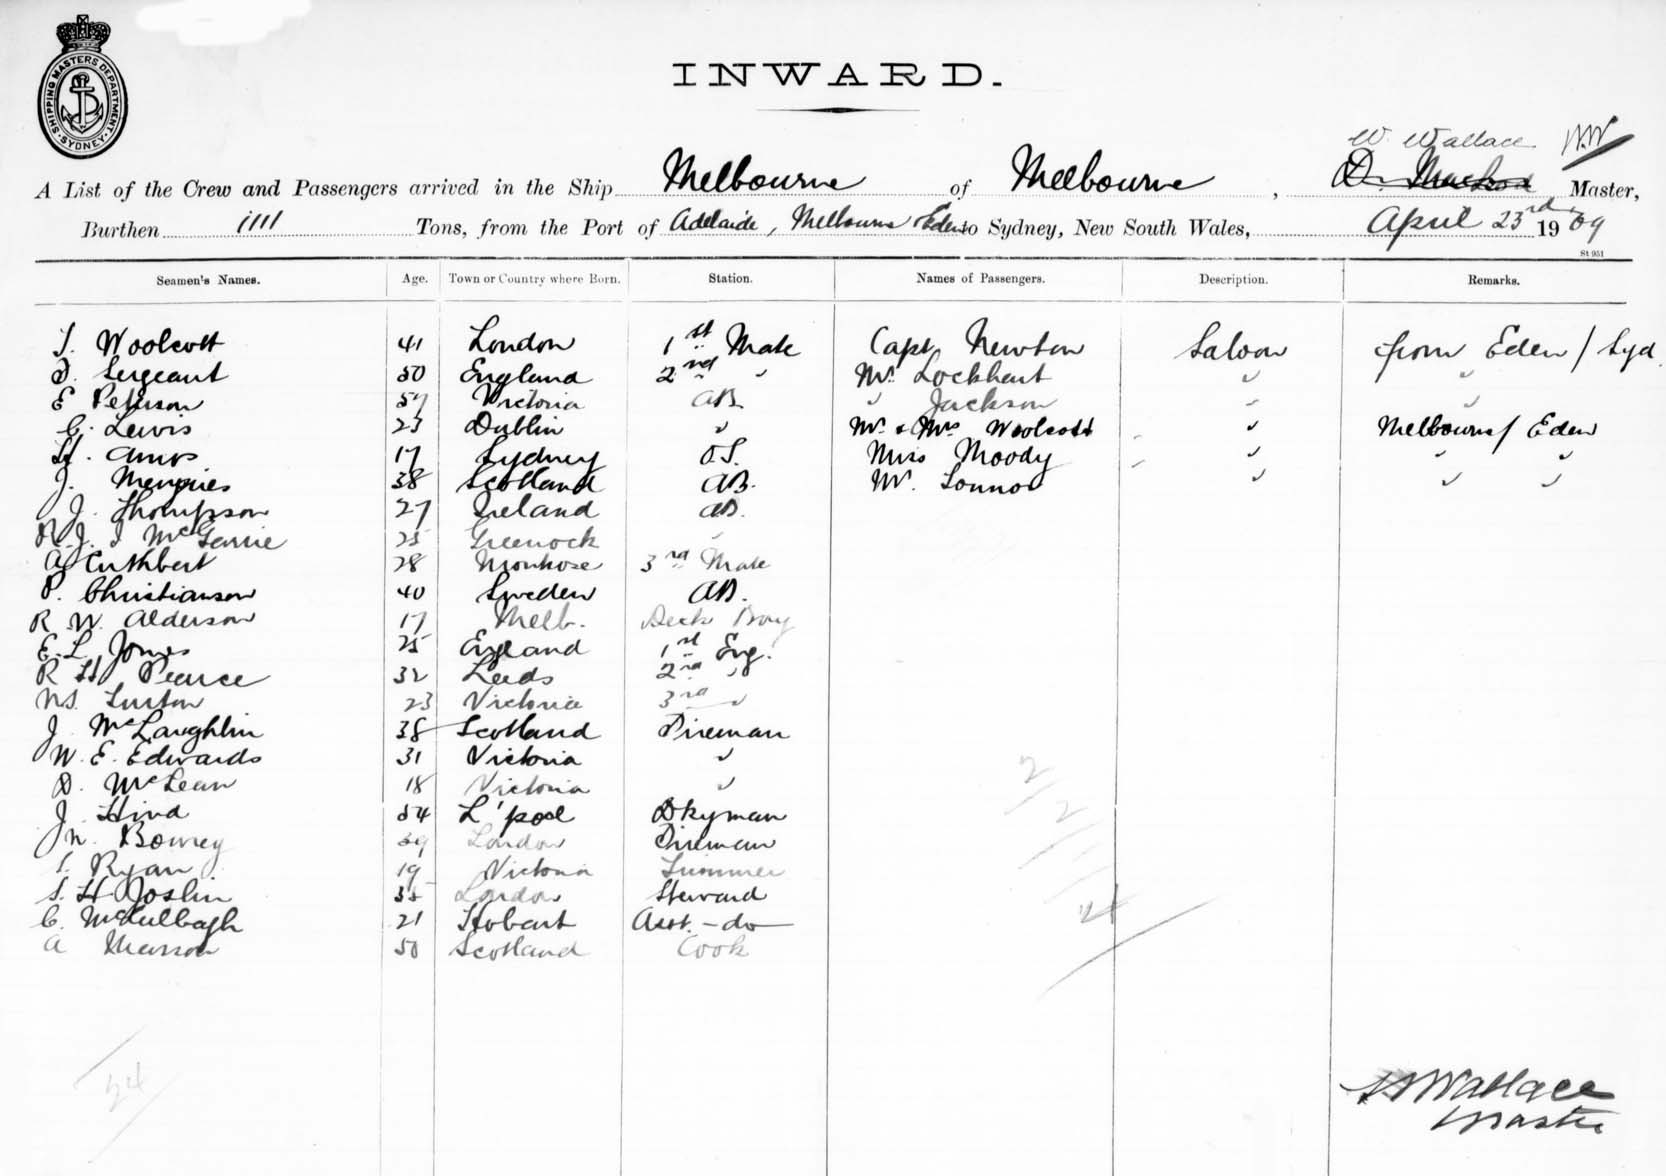 SHIPPING MASTERS DEPARTMENT. SYDNEY.
INWARD.
W. Wallace
A List of the Crew and Passengers arrived in the Ship Melbourne of Melbourne, D. Master,
Burthen 1111 Tons, from the Port of Adelaide, Melbourne & Eden to Sydney, New South Wales, April 23rd 1909
St 951
Seamen's Names. Age. Town or Country where Born. Station. Names of Passengers. Description. Remarks.
Woolcott 41 London 1st Mate Capt Newton Saloon from Eden / Syd
Sergeant 50 England 2nd " Mr. Lockhart " "
E Peterson Victoria AB. " Jackson " "
C. Lewis 23 Dublin " Mr. & Mrs Woolcott " Melbourne / Eden
H. Amos 17 Sydney O.S. Miss Moody " " "
J. Menzies 38 Scotland AB. Mr. " " "
J. Thompson 27 Ireland AB.
R. J. 25 Greenock "
A Cuthbert 28 Montrose 3rd Mate
P. Christianson 40 Sweden AB.
R W. Alderson 17 Melb. Deck Boy
E. L. Jones 25 England 1st Eng.
R H Pearce 32 Leeds 2nd "
23 Victoria 3rd "
J. McLaughlin 38 Scotland Fireman
W. E. Edwards 31 Victoria "
D. McLean 18 Victoria "
J. Hind 54 L'pool Dkyman
Bowrey 39 London Fireman
Ryan 19 Victoria Trimmer
S. H Joslin 35 London Steward
C. 21 Hobart Asst. - do
A 50 Scotland Cook
24
Wallace
Master